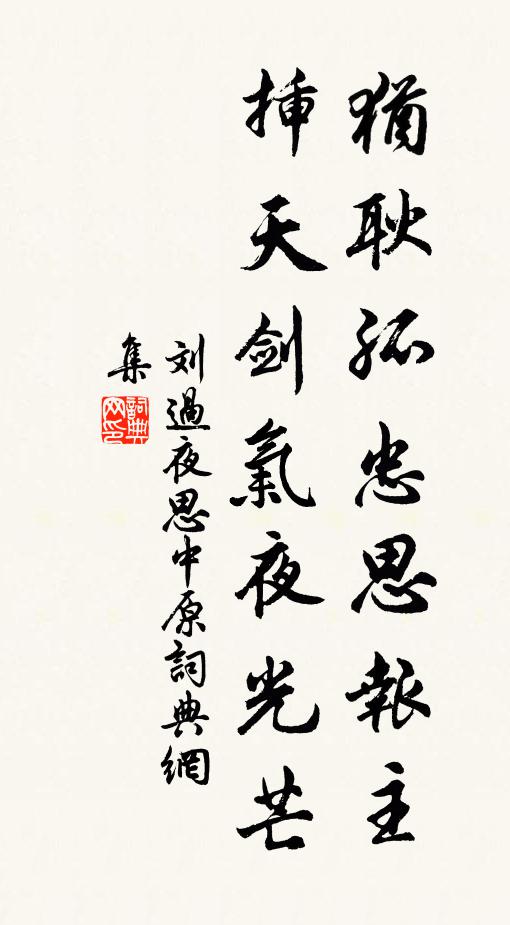 猶耿孤忠思報主
挿天剑氣夜光芒
刘過夜思中原詞典網
集
詞典
网印